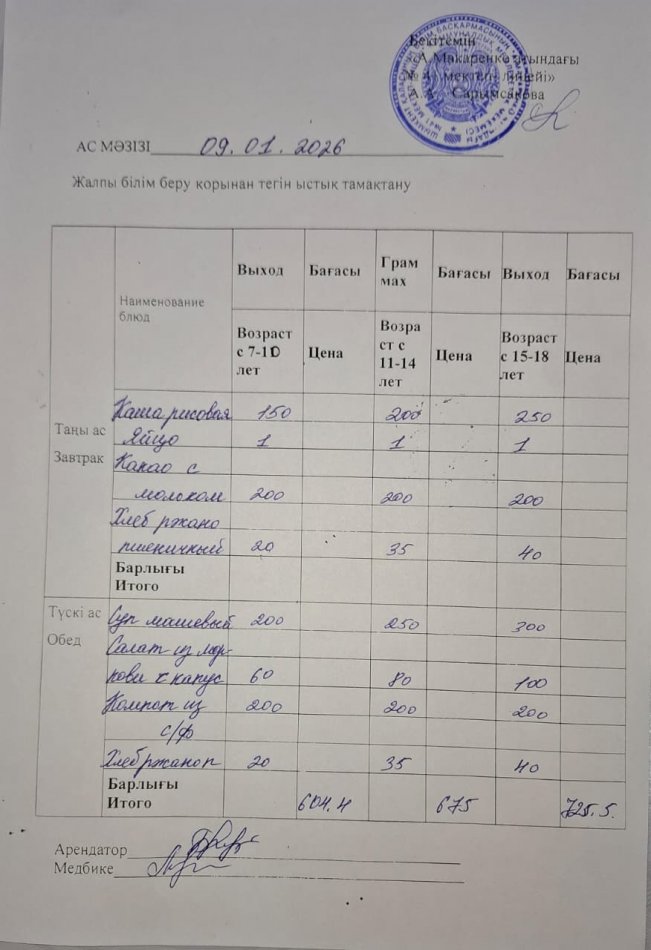 Бекітемін
«А.Макаренко атындағы
№ 41 мектеп- лицейі»
А.А. Сарымсакова
АС МӘЗІЗІ 09.01.2026
Жалпы білім беру қорынан тегін ыстық тамақтану
Наименование блюд
Выход Бағасы Грам мах Бағасы Выход Бағасы
Возраст с 7-10 лет Цена Возра ст с 11-14 лет Цена Возраст с 15-18 лет Цена
Таңы ас
Завтрак
Каша рисовая 150 200 250
Яйцо 1 1 1
Какао с
молоком 200 200 200
Хлеб ржано
пшеничный 20 35 40
Барлығы
Итого
Түскі ас
Обед
Суп машевый 200 250 300
Салат из мор-
кови с капус 60 80 100
Компот из 200 200 200
с/ф
Хлеб ржано п 20 35 40
Барлығы
Итого 604.4 675 725.5.
Арендатор
Медбике